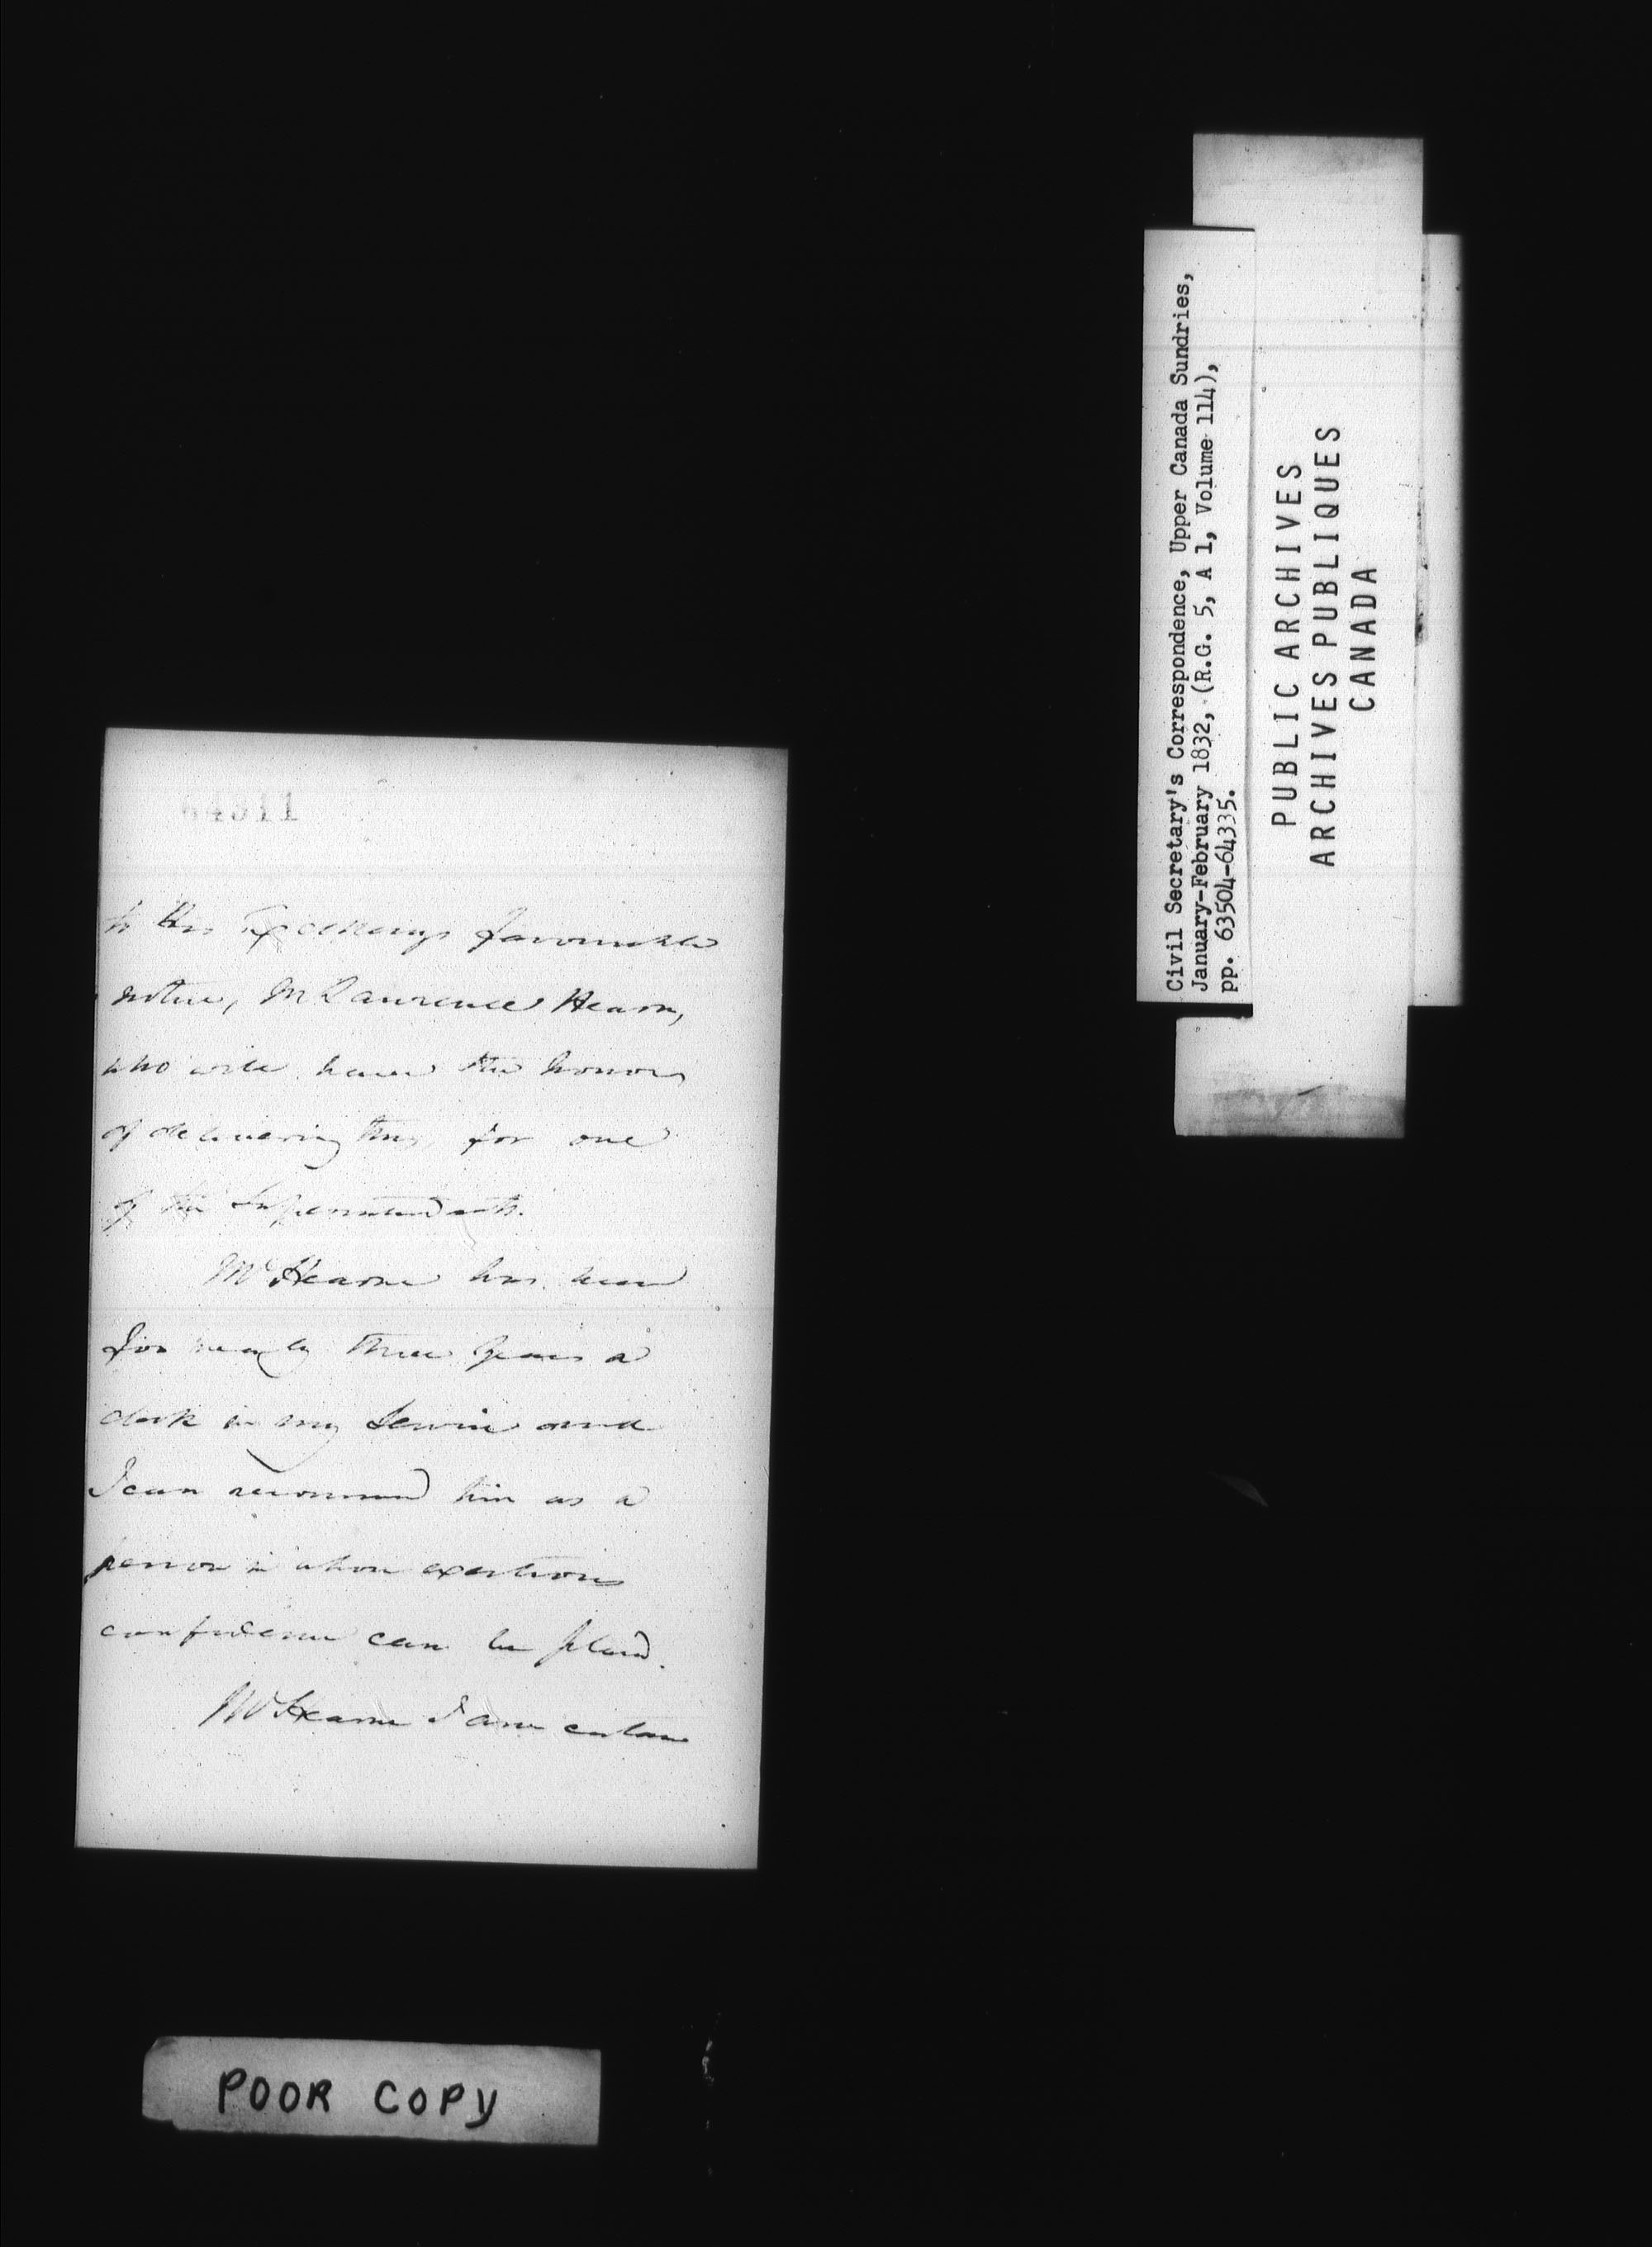 64311
to His Excellencys favourable
notice, Mr Lawrence Hearn,
who will have the honor
of delivering this, for one
of the Superintendents.
Mr Hearne has been
for nearly three years a
clerk in my Service and
I can recommend him as a
person in whose exertions
confidence can be placed.
Mr Hearne I am certain
POOR COPY
Civil Secretary's Correspondence, Upper Canada Sundries,
January-February 1832, (R.G. 5, A 1, Volume 114),
pp. 63504-64335.
PUBLIC ARCHIVES
ARCHIVES PUBLIQUES
CANADA